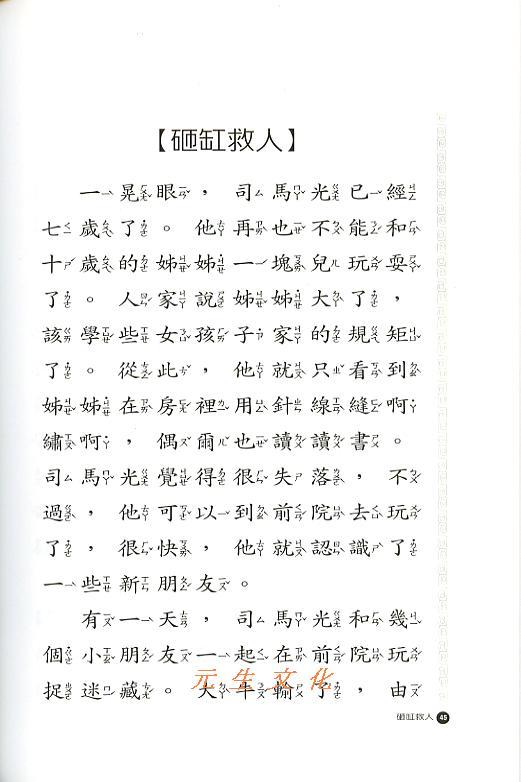 【砸缸救人】
一晃眼，司馬光已經
七歲了。他再也不能和
十歲的姊姊一塊兒玩耍
了。人家說姊姊大了，
該學些女孩子家的規矩
了。從此，他就只看到
姊姊在房裡用針線縫啊
繡啊，偶爾也讀讀書。
司馬光覺得很失落，不
過，他可以到前院去玩
了，很快，他就認識了
一些新朋友。
有一天，司馬光和幾
個小朋友一起在前院玩
捉迷藏。大牛輸了，由
元生文化
砸缸救人 45